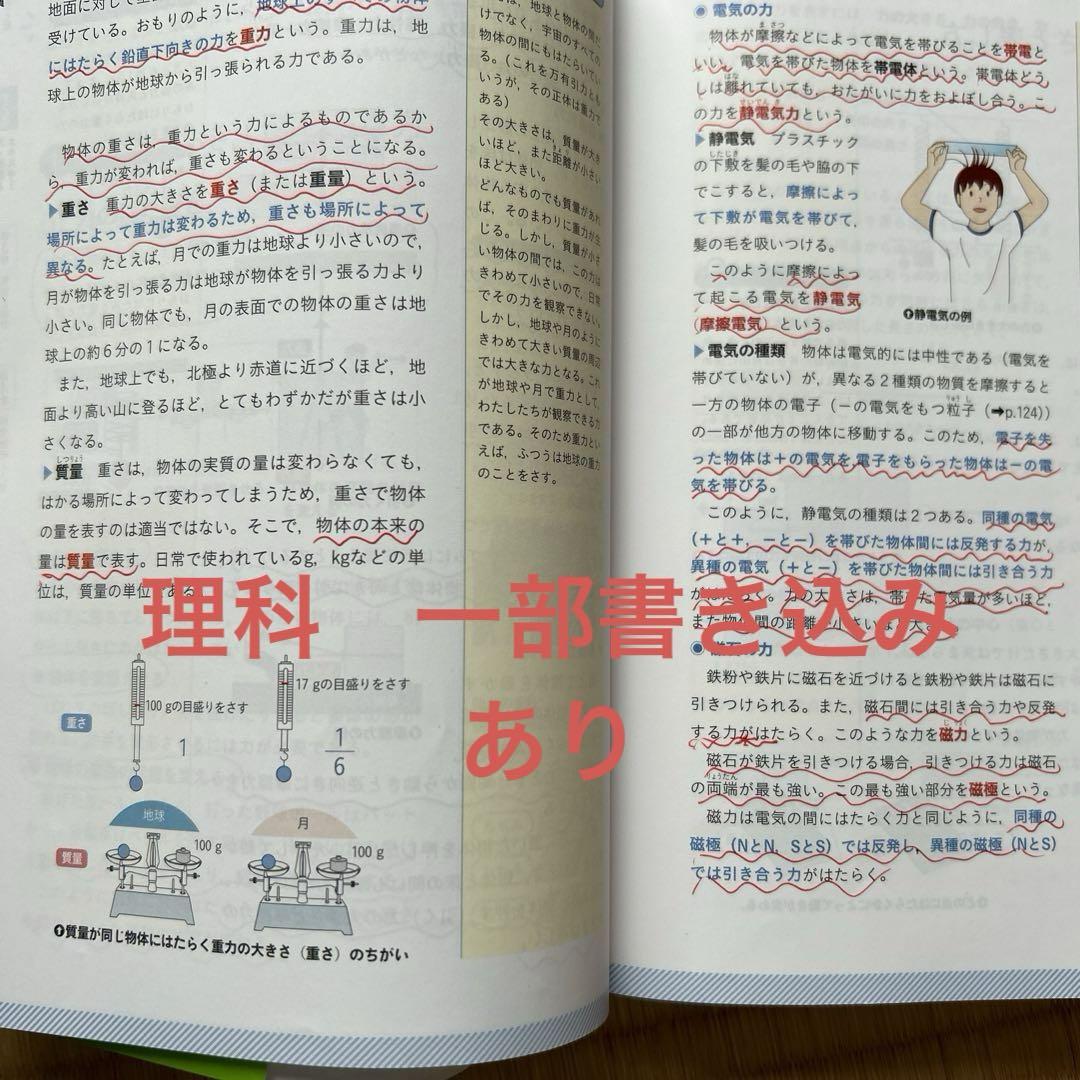 地面に対して
受けている。おもりのように,地球上の
にはたらく鉛直下向きの力を重力という。重力は,地
球上の物体が地球から引っ張られる力である。
物体の重さは,重力という力によるものであるか
ら,重力が変われば,重さも変わるということになる。
▶重さ 重力の大きさを重さ(または重量)という。
場所によって重力は変わるため,重さも場所によって
異なる。たとえば,月での重力は地球より小さいので,
月が物体を引っ張る力は地球が物体を引っ張る力より
小さい。同じ物体でも,月の表面での物体の重さは地
球上の約6分の1になる。
また,地球上でも,北極より赤道に近づくほど,地
面より高い山に登るほど,とてもわずかだが重さは小
さくなる。
しつりょう
▶質量 重さは,物体の実質の量は変わらなくても,
はかる場所によって変わってしまうため,重さで物体
の量を表すのは適当ではない。そこで,物体の本来の
量は質量で表す。日常で使われているg,kgなどの単
位は,質量の単位である。
17 gの目盛りをさす
100 gの目盛りをさす
重さ
1
1
6
地球
月
質量
100 g
100 g
↑質量が同じ物体にはたらく重力の大きさ(重さ)のちがい
は,地球と物体の間だ
けでなく,宇宙のすべての
物体の間にもはたらいてい
る。(これを万有引力とも
いうが,その正体は重力で
ある)
その大きさは,質量が大き
いほど,また距離が小さい
ほど大きい。
どんなものでも質量があれ
ば,そのまわりに重力が生
じる。しかし,質量が小さ
い物体の間では,この力は
きわめて小さいので,日常
でその力を観察できない。
しかし,地球や月のように
きわめて大きい質量の周辺
では大きな力となる。これ
が地球や月で重力として,
わたしたちが観察できる力
である。そのため重力とい
えば,ふつうは地球の重力
のことをさす。
◉電気の力
まさつ
物体が摩擦などによって電気を帯びることを帯電と
いい,電気を帯びた物体を帯電体という。帯電体どう
はな
しは離れていても,おたがいに力をおよぼし合う。こ
せいでんき
の力を静電気力という。
▶静電気 プラスチック
したじき
の下敷を髪の毛や脇の下
でこすると,摩擦によっ
て下敷が電気を帯びて,
髪の毛を吸いつける。
このように摩擦によっ
て起こる電気を静電気
(摩擦電気)という。
↑静電気の例
▶電気の種類 物体は電気的には中性である(電気を
帯びていない)が,異なる2種類の物質を摩擦すると
りゅうし
一方の物体の電子(-の電気をもつ粒子(➡p.124))
の一部が他方の物体に移動する。このため,電子を失
った物体は+の電気を電子をもらった物体は-の電
気を帯びる。
このように,静電気の種類は2つある。同種の電気
(+と+,-と-)を帯びた物体間には反発する力が,
異種の電気(+と-)を帯びた物体間には引き合う力
がはたらく。力の大きさは,帯びた電気量が多いほど,
また物体間の距離が小さいほど大きい。
◉磁石の力
鉄粉や鉄片に磁石を近づけると鉄粉や鉄片は磁石に
引きつけられる。また,磁石間には引き合う力や反発
じりょく
する力がはたらく。このような力を磁力という。
磁石が鉄片を引きつける場合,引きつける力は磁石
りょうたん
の両端が最も強い。この最も強い部分を磁極という。
磁力は電気の間にはたらく力と同じように,同種の
磁極(NとN,SとS)では反発し,異種の磁極(NとS)
では引き合う力がはたらく。
理科 一部書き込み
あり